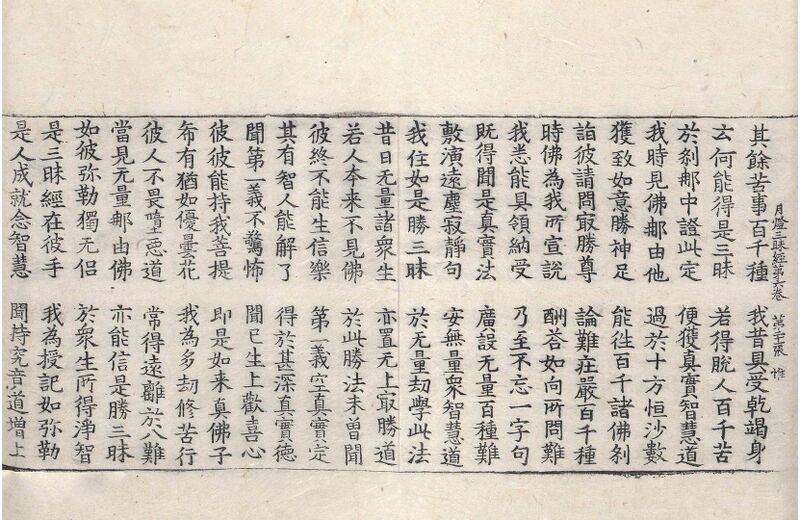 其餘苦事百千種　我昔具受乾竭身
月燈三昧經第六卷　第二十張　惟
云何能得是三昧　若得脫人百千苦
於刹那中證此定　便獲真實智慧道
我時見佛那由他　過於十方恒沙數
獲致如意勝神足　能往百千諸佛刹
詣彼請問㝡勝尊　論難莊嚴百千種
時佛為我所宣說　酬答如向所問難
我悉能具領納受　乃至不忘一字句
既得聞是真實法　廣設无量百種難
敷演遠塵寂靜句　安無量衆智慧道
我住如是勝三昧　於无量劫學此法
昔日无量諸衆生　亦置无上㝡勝道
若人本來不見佛　於此勝法未曾聞
彼終不能生信樂　第一義空真實定
其有智人能解了　得於甚深真實德
聞第一義不驚怖　聞已生上歡喜心
彼彼能持我菩提　即是如來真佛子
希有猶如優曇花　我為多劫修苦行
彼人不畏墮惡道　常得遠離於八難
當見无量那由佛　亦能信是勝三昧
如彼弥勒獨无侣　於衆生所得淨智
是三昧經在彼手　我為授記如弥勒
是人成就念智慧　聞持究音道增上